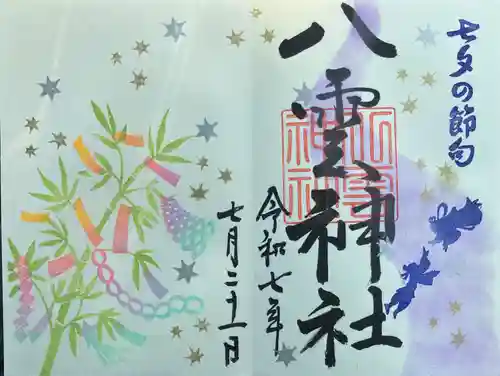 七夕の節句
八雲神社
令和七年
七月二十一日